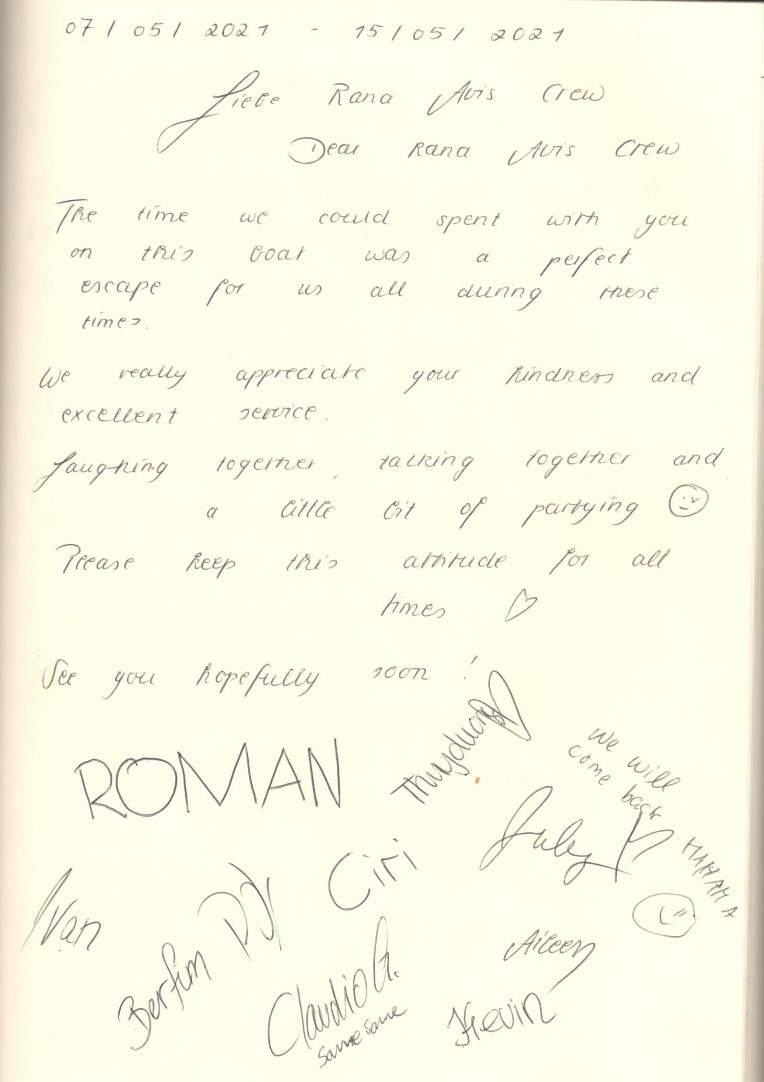 07/05/2021 - 15/05/2021
Liebe Rana Avis Crew
Dear Rana Avis Crew
The time we could spent with you
on this boat was a perfect
escape for us all during these
times.
We really appreciate your kindness and
excellent service.
Laughing together, talking together and
a little bit of partying
Please keep this attitude for all
times
See you hopefully soon!
ROMAN
Thuyduong
We will
come back
HAHAHA
July
Ciri
Ivan
Berfim
Aileen
Claudio G.
same same
Kevin